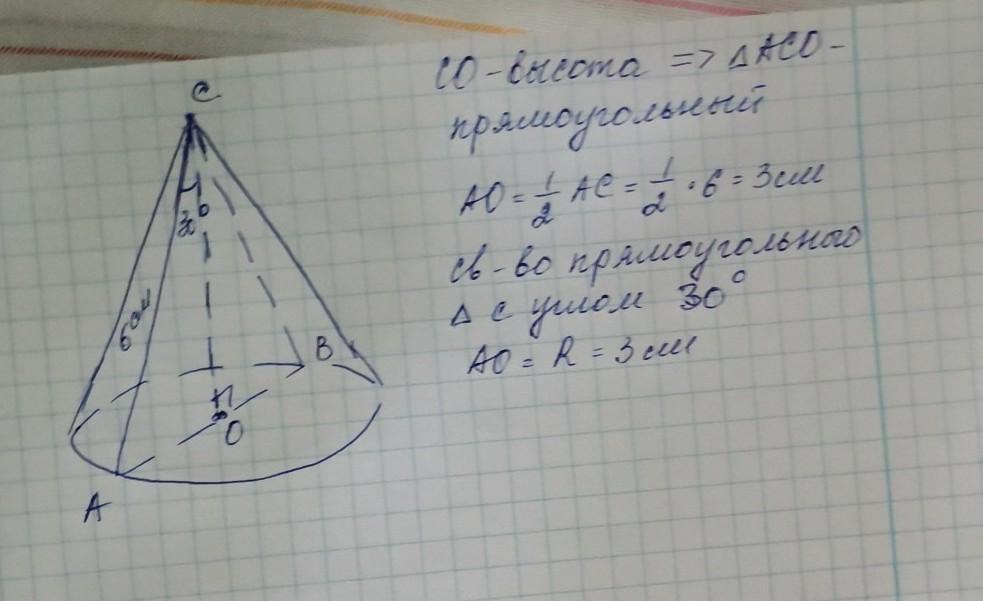 C
30
6 см
B
O
A
CO - высота => △ACO -
прямоугольный
AO = 1/2 AC = 1/2 · 6 = 3 см
св-во прямоугольного
△ с углом 30°
AO = R = 3 см